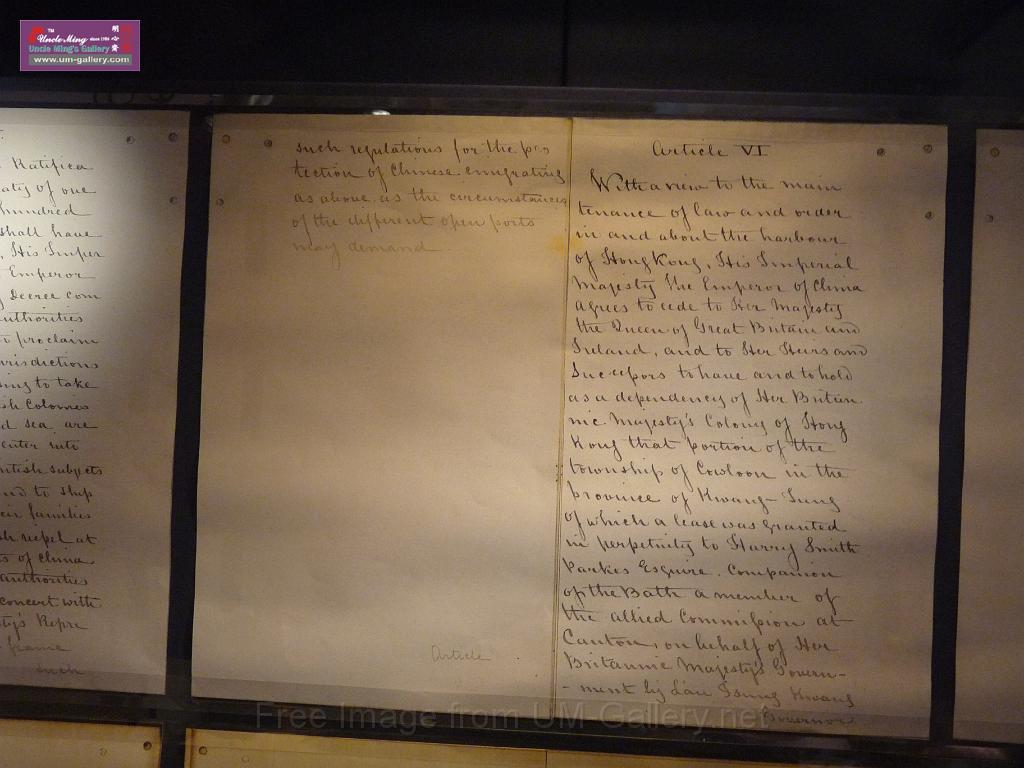 TM
Uncle Ming since 1984
Uncle Ming's Gallery
www.um-gallery.com
Ratifica
aty of one
hundred
shall have
, His Imper
Emperor
Decree com
authorities
to proclaim
urisdictions
ing to take
sh Colonies
d sea, are
enter into
ritish subjects
nd to ship
eir families
sh vessel at
ts of China
authorities
concert with
ty's Repre
frame
such
such regulations for the pro
tection of Chinese emigrating
as above as the circumstances
of the different open ports
may demand.
Article
Article VI
With a view to the main
tenance of law and order
in and about the harbour
of Hong Kong, His Imperial
Majesty The Emperor of China
agrees to cede to Her Majesty
the Queen of Great Britain and
Ireland, and to Her Heirs and
Successors to have and to hold
as a dependency of Her Britan
nic Majesty's Colony of Hong
Kong that portion of the
township of Cowloon in the
province of Kwang-Tung
of which a lease was granted
in perpetuity to Harry Smith
Parkes Esquire, Companion
of the Bath a member of
the allied Commission at
Canton, on behalf of Her
Britannic Majesty's Govern-
- ment by Lau Tsung Kwang
Governor
Free Image from UM Gallery.net